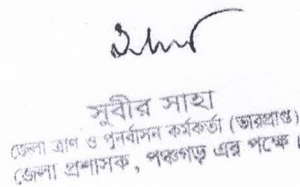 সুবীর সাহা
জেলা ত্রাণ ও পুনর্বাসন কর্মকর্তা (ভারপ্রাপ্ত)
জেলা প্রশাসক, পঞ্চগড় এর পক্ষে।